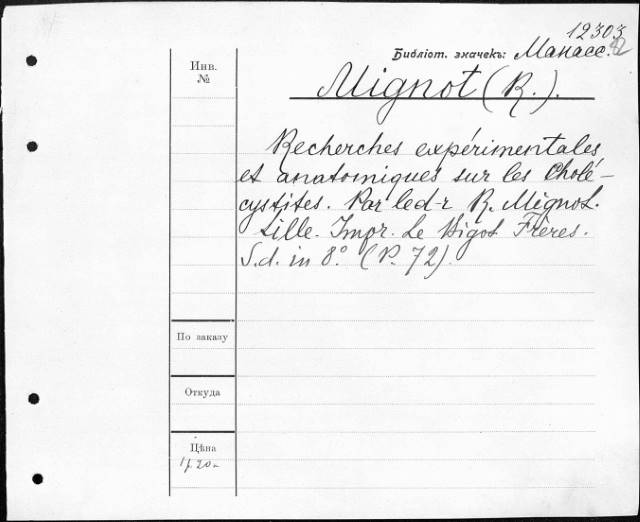 12303
Библіот. значекъ: Манасс. 82
Инв.
№
Mignot (R.).
Recherches expérimentales
et anatomiques sur les Cholé-
cystites. Par le d-r R. Mignot.
Lille. Impr. Le Bigot Frères.
S.d. in 8º. (P. 72).
По заказу
Откуда
Цѣна